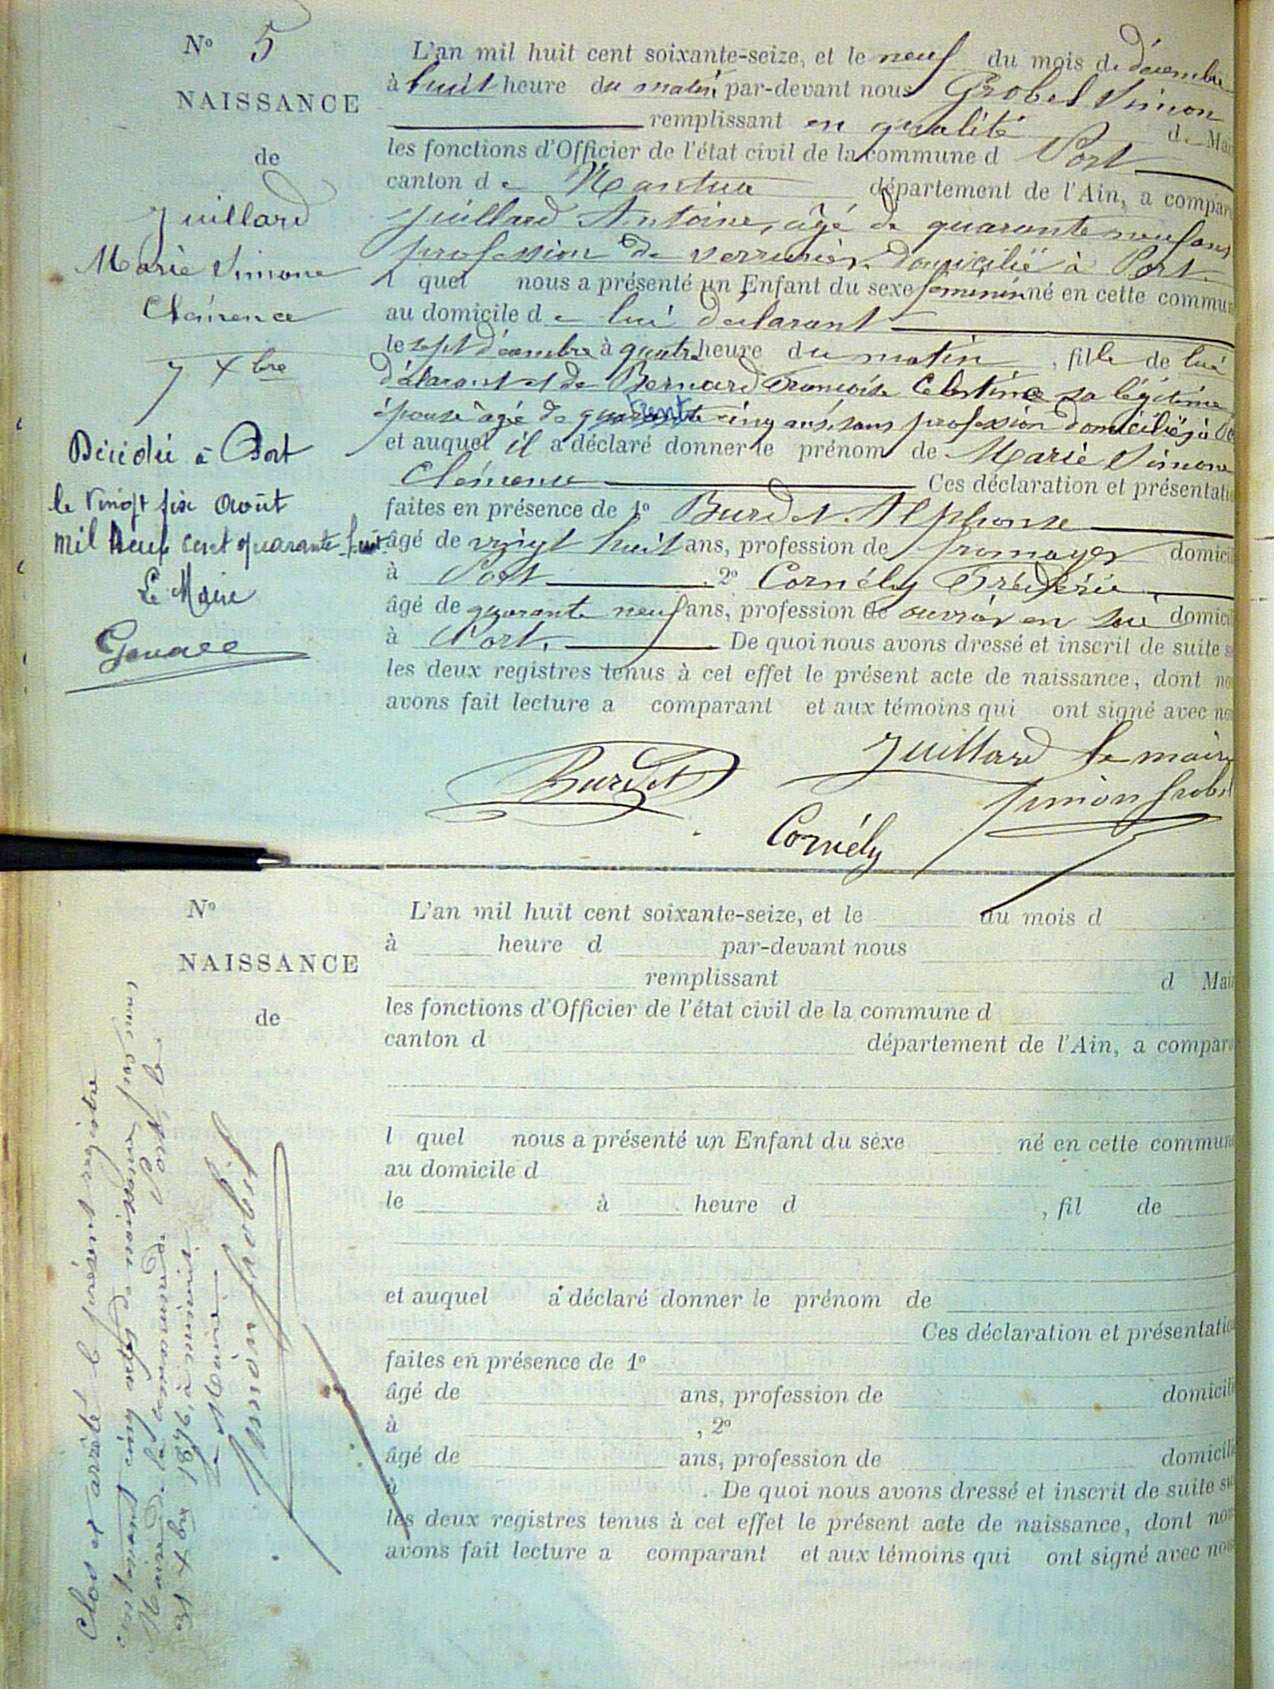 N° 5
NAISSANCE
de
Juillard
Marie Simone
Clémence
7 Xbre
Décédée à Port
le vingt six Août
mil neuf cent quarante huit
Le Maire
L'an mil huit cent soixante-seize, et le neuf du mois de décembre
à huit heure du matin par-devant nous Grobel Simon
remplissant en qualité de Mai
les fonctions d'Officier de l'état civil de la commune d Port
canton de Nantua département de l'Ain, a compar
Juillard Antoine, âgé de quarante neuf ans,
profession de serrurier domicilié à Port.
l quel nous a présenté un Enfant du sexe féminin né en cette commun
au domicile de lui déclarant
le sept décembre à quatre heure du matin, fille de lui
déclarant et de Bernard Françoise Célestine sa légitime
épouse âgé de trente cinq ans, sans profession domiciliés à
et auquel il a déclaré donner le prénom de Marie Simone
Clémence Ces déclaration et présentati
faites en présence de 1° Burdet Alphonse
âgé de vingt huit ans, profession de fromager domici
à Port 2° Cornély Frédéric
âgé de quarante neuf ans, profession de ouvrier en soie domici
à Port. De quoi nous avons dressé et inscrit de suite s
les deux registres tenus à cet effet le présent acte de naissance, dont no
avons fait lecture a comparant et aux témoins qui ont signé avec no
Juillard le maire
Burdet Simon Grobel
Cornély
N°
NAISSANCE
de
L'an mil huit cent soixante-seize, et le du mois d
à heure d par-devant nous
remplissant d Mai
les fonctions d'Officier de l'état civil de la commune d
canton d département de l'Ain, a compar
l quel nous a présenté un Enfant du sexe né en cette commun
au domicile d
le à heure d , fil de
et auquel a déclaré donner le prénom de
Ces déclaration et présentatio
faites en présence de 1°
âgé de ans, profession de domicili
à , 2°
âgé de ans, profession de domicili
à . De quoi nous avons dressé et inscrit de suite su
les deux registres tenus à cet effet le présent acte de naissance, dont nou
avons fait lecture a comparant et aux témoins qui ont signé avec nou
Clos et arrêté le présent registre
contenant cinq actes de naissance par nous
Maire de la commune de Port, le
31 Xbre 1876, à minuit
Le Maire
Simon Grobel